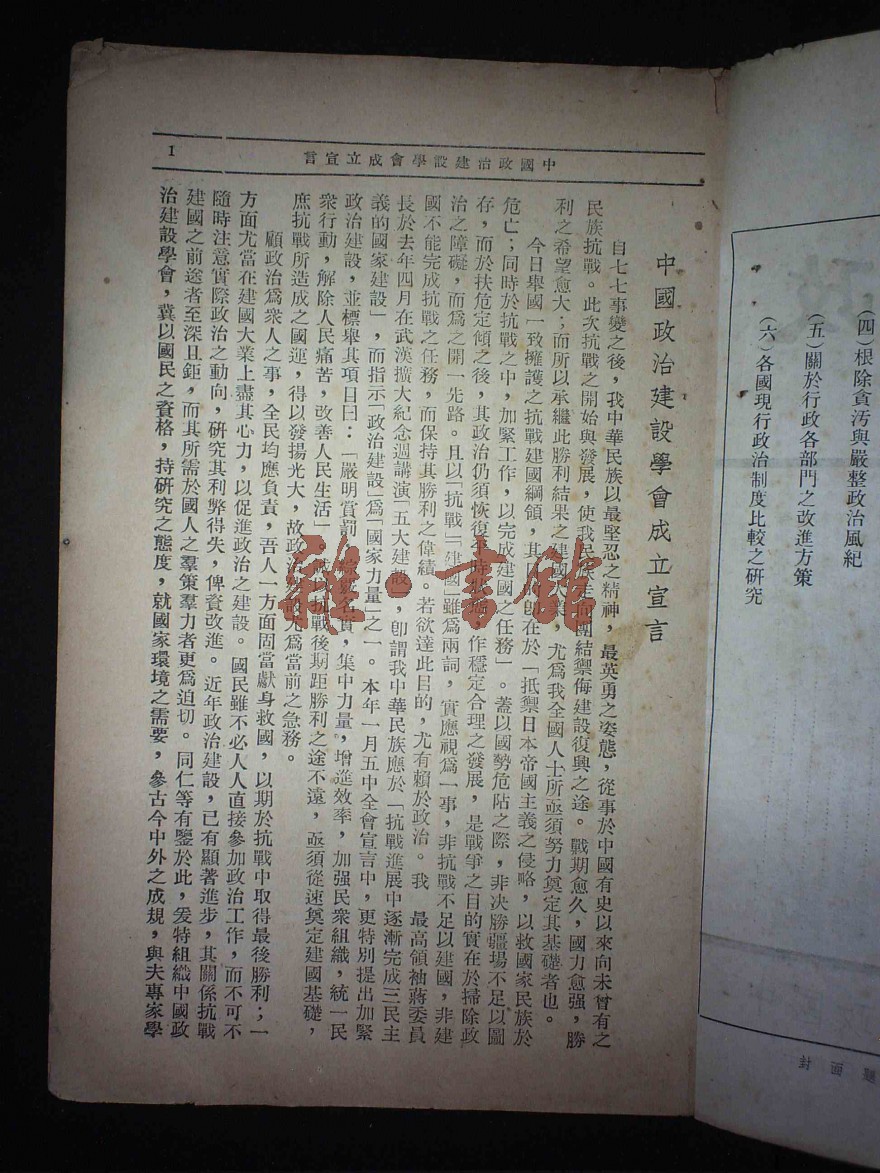 (四)根除貪汚與嚴整政治風紀
(五)關於行政各部門之改進方策
(六)各國現行政治制度比較之硏究
封面題
中國政治建設學會成立宣言
1
中國政治建設學會成立宣言
自七七事變之後,我中華民族以最堅忍之精神,最英勇之姿態,從事於中國有史以來向未曾有之
民族抗戰。此次抗戰之開始與發展,使我民族走向團結禦侮建設復興之途。戰期愈久,國力愈强,勝
利之希望愈大;而所以承繼此勝利結果之建國大業,尤爲我全國人士所亟須努力奠定其基礎者也。
今日舉國一致擁護之抗戰建國綱領,其目的卽在於「抵禦日本帝國主義之侵略,以救國家民族於
危亡;同時於抗戰之中,加緊工作,以完成建國之任務」。蓋以國勢危阽之際,非決勝疆場不足以圖
存,而於扶危定傾之後,其政治仍須恢復平時狀態,作穩定合理之發展,是戰爭之目的實在於掃除政
治之障礙,而爲之開一先路。且以「抗戰」「建國」雖爲兩詞,實應視爲一事,非抗戰不足以建國,非建
國不能完成抗戰之任務,而保持其勝利之偉績。若欲達此目的,尤有賴於政治。我 最高領袖蔣委員
長於去年四月在武漢擴大紀念週講演「五大建設」,卽謂我中華民族應於「抗戰進展中逐漸完成三民主
義的國家建設」,而指示「政治建設」爲「國家力量」之一。本年一月五中全會宣言中,更特別提出加緊
政治建設,並標舉其項目曰:「嚴明賞罰,綜覈名實,集中力量,增進效率,加强民衆組織,統一民
衆行動,解除人民痛苦,改善人民生活」,誠以抗戰後期距勝利之途不遠,亟須從速奠定建國基礎,
庶抗戰所造成之國運,得以發揚光大,故政治建設尤爲當前之急務。
顧政治爲衆人之事,全民均應負責,吾人一方面固當獻身救國,以期於抗戰中取得最後勝利;一
方面尤當在建國大業上盡其心力,以促進政治之建設。國民雖不必人人直接參加政治工作,而不可不
隨時注意實際政治之動向,硏究其利弊得失,俾資改進。近年政治建設,已有顯著進步,其關係抗戰
建國之前途者至深且鉅,而其所需於國人之羣策羣力者更爲迫切。同仁等有鑒於此,爰特組織中國政
治建設學會,冀以國民之資格,持硏究之態度,就國家環境之需要,參古今中外之成規,與夫專家學
雜·書館